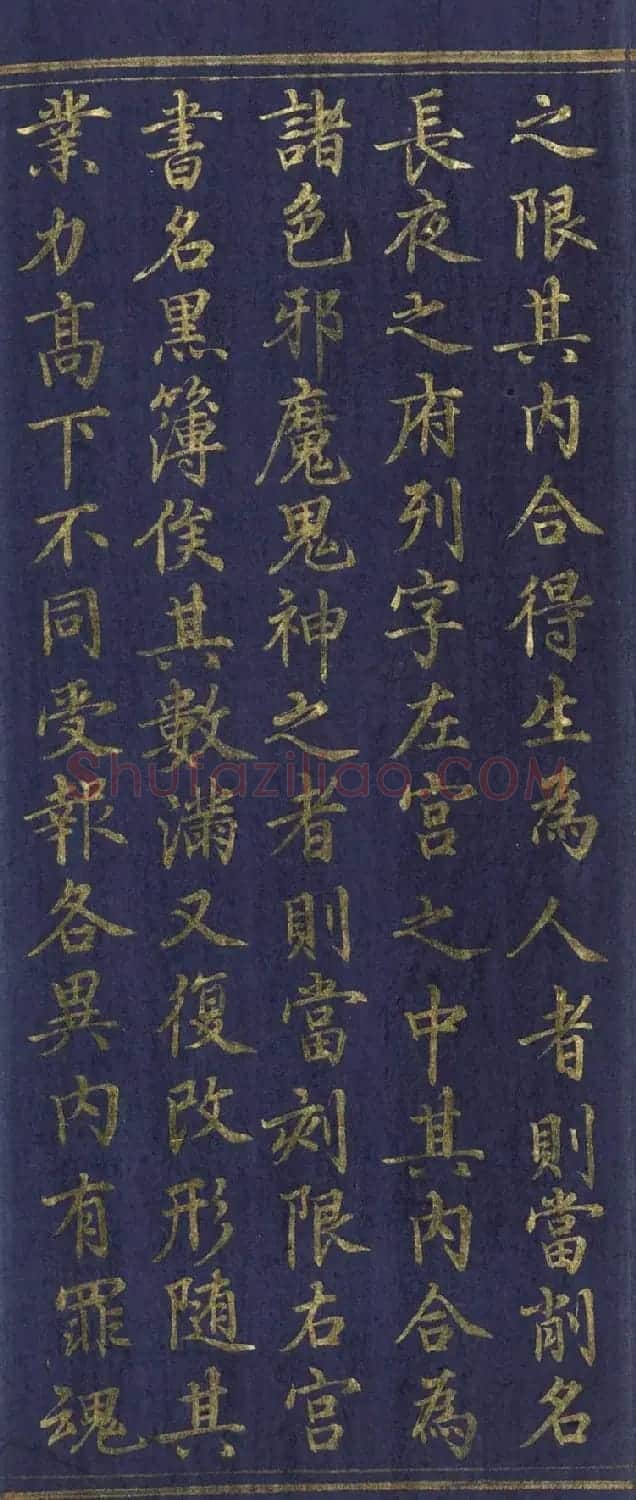 之限其内合得生為人者則當削名
長夜之府列字左宫之中其内合為
諸色邪魔鬼神之者則當刻限右宫
書名黒簿俟其數滿又復改形随其
業力髙下不同受報各異内有罪魂
Shufaziliao.COM